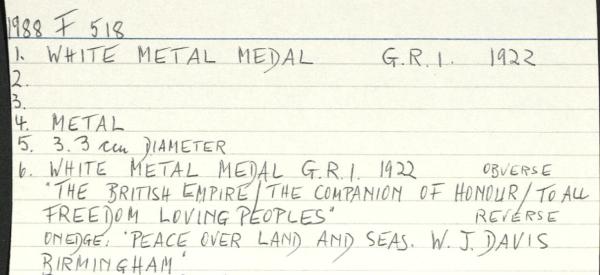 1988 F 518
1. WHITE METAL MEDAL G.R.I. 1922
2.
3.
4. METAL
5. 3.3 cm DIAMETER
6. WHITE METAL MEDAL G.R.I. 1922 OBVERSE
"THE BRITISH EMPIRE/THE COMPANION OF HONOUR/TO ALL
FREEDOM LOVING PEOPLES" REVERSE
ON EDGE: 'PEACE OVER LAND AND SEAS. W. J. DAVIS
BIRMINGHAM'